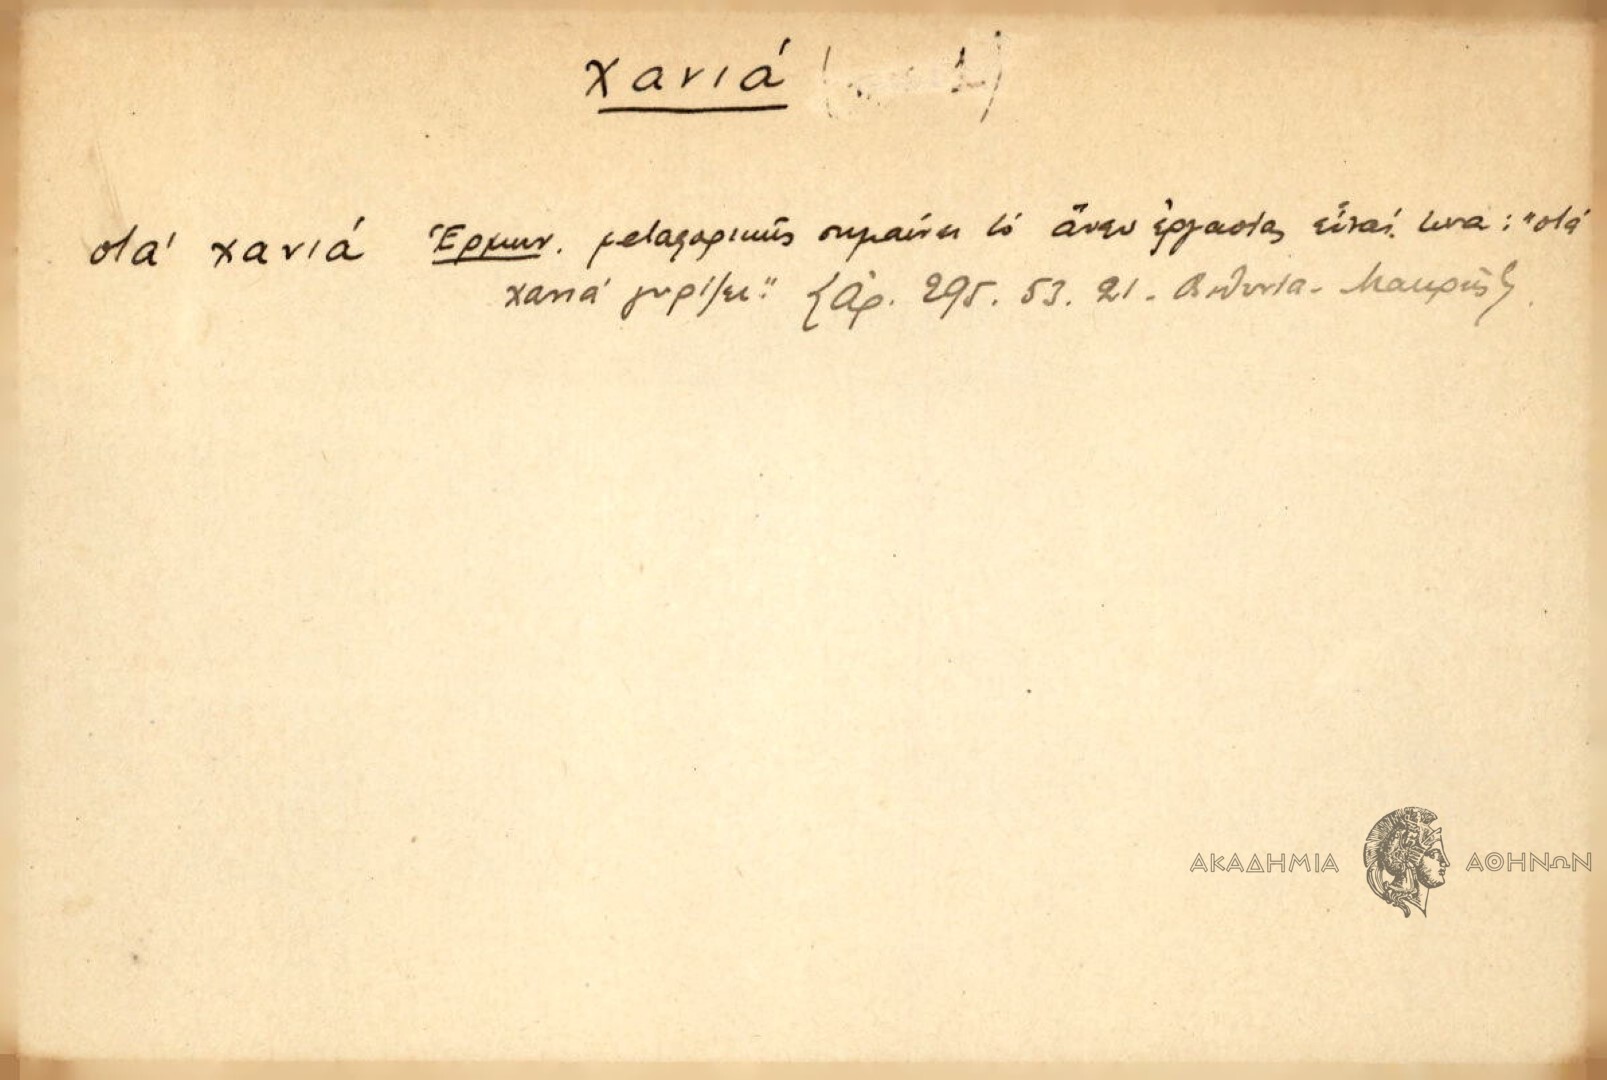 χανιά
στά χανιά Ἑρμην. μεταφορικῶς σημαίνει τό ἄνευ ἐργασίας εἶναί τινα : "στά
χανιά γυρίζει" {Ἀρ. 295. 53. 21. Βιθυνία - Μακρῆς}
ΑΚΑΔΗΜΙΑ ΑΘΗΝΩΝ